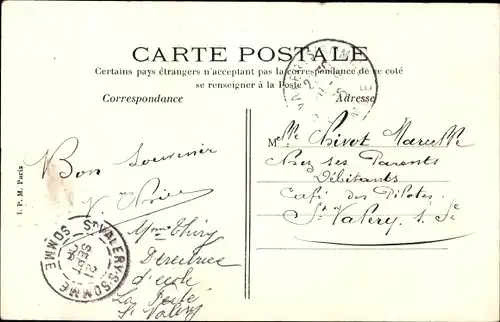 CARTE POSTALE
Certains pays étrangers n'acceptant pas la correspondance de ce coté
se renseigner à la Poste
Correspondance
Adresse
Bon Souvenir
Mme Thiry
Directrice
d'école
La Ferté
St Valery
Melle Chivot Marcelle
Chez ses Parents
Débitants
Café des Pilotes
St Valery s. Se
I. P. M. Paris
ST VALERY-S-SOMME
21
SEPT
SOMME